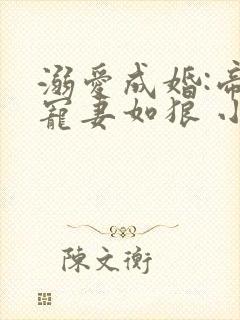 溺愛成婚:帝
寵妻如狼 小
陳文衡